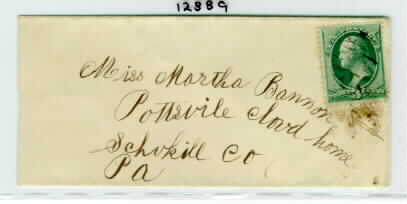 12889
Miss Martha Bannon
Pottsvile Clovd home
Schvkill Co
Pa